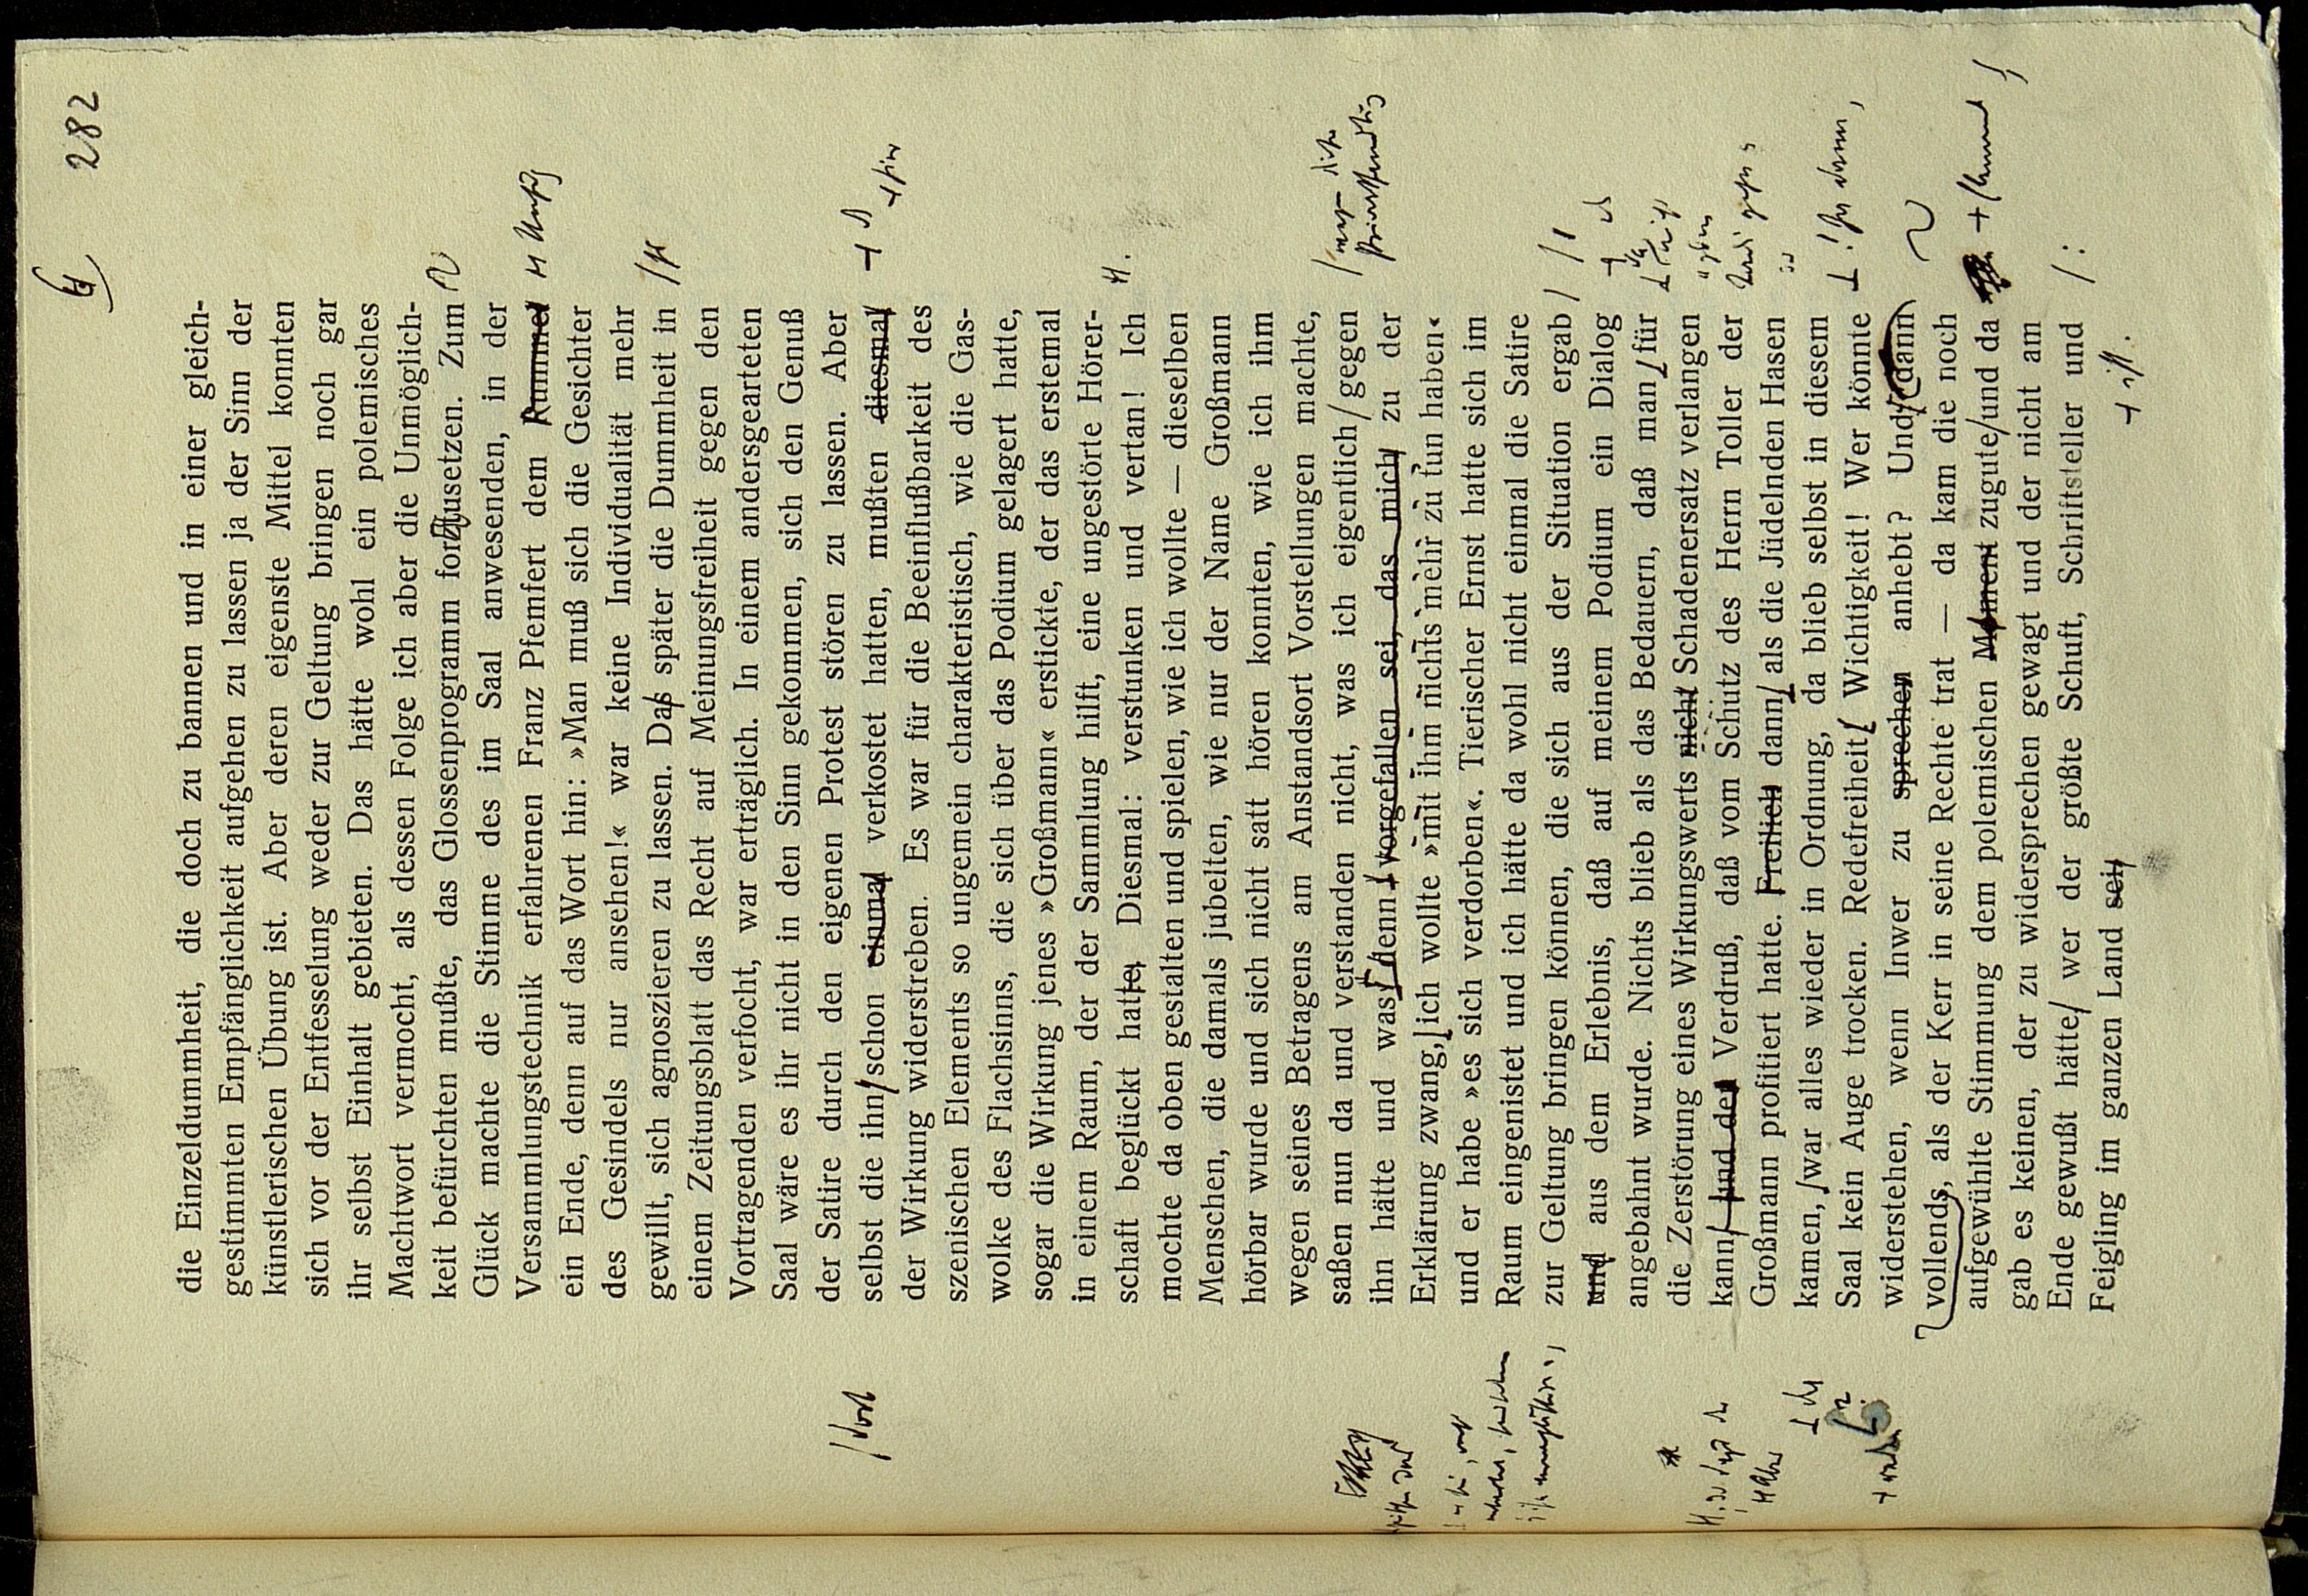 282
die Einzeldummheit, die doch zu bannen und in einer gleich-
gestimmten Empfänglichkeit aufgehen zu lassen ja der Sinn der
künstlerischen Übung ist. Aber deren eigenste Mittel konnten
sich vor der Entfesselung weder zur Geltung bringen noch gar
ihr selbst Einhalt gebieten. Das hätte wohl ein polemisches
Machtwort vermocht, als dessen Folge ich aber die Unmöglich-
keit befürchten mußte, das Glossenprogramm forztusetzen. Zum
Glück machte die Stimme des im Saal anwesenden, in der
Versammlungstechnik erfahrenen Franz Pfemfert dem Rummel
ein Ende, denn auf das Wort hin: »Man muß sich die Gesichter
des Gesindels nur ansehen!« war keine Individualität mehr
gewillt, sich agnoszieren zu lassen. Das später die Dummheit in
einem Zeitungsblatt das Recht auf Meinungsfreiheit gegen den
Vortragenden verfocht, war erträglich. In einem andersgearteten
Saal wäre es ihr nicht in den Sinn gekommen, sich den Genuß
der Satire durch den eigenen Protest stören zu lassen. Aber
selbst die ihn schon einmal verkostet hatten, mußten diesmal
der Wirkung widerstreben. Es war für die Beeinflußbarkeit des
szenischen Elements so ungemein charakteristisch, wie die Gas-
wolke des Flachsinns, die sich über das Podium gelagert hatte,
sogar die Wirkung jenes »Großmann« erstickte, der das erstemal
in einem Raum, der der Sammlung hilft, eine ungestörte Hörer-
schaft beglückt hatte. Diesmal: verstunken und vertan! Ich
mochte da oben gestalten und spielen, wie ich wollte — dieselben
Menschen, die damals jubelten, wie nur der Name Großmann
hörbar wurde und sich nicht satt hören konnten, wie ich ihm
wegen seines Betragens am Anstandsort Vorstellungen machte,
saßen nun da und verstanden nicht, was ich eigentlich gegen
ihn hätte und was denn vorgefallen sei, das mich zu der
Erklärung zwang, ich wollte »mit ihm nichts mehr zu tun haben«
und er habe »es sich verdorben«. Tierischer Ernst hatte sich im
Raum eingenistet und ich hätte da wohl nicht einmal die Satire
zur Geltung bringen können, die sich aus der Situation ergab
und aus dem Erlebnis, daß auf meinem Podium ein Dialog
angebahnt wurde. Nichts blieb als das Bedauern, daß man für
die Zerstörung eines Wirkungswerts nicht Schadenersatz verlangen
kann und der Verdruß, daß vom Schutz des Herrn Toller der
Großmann profitiert hatte. Freilich dann als die Jüdelnden Hasen
kamen, war alles wieder in Ordnung, da blieb selbst in diesem
Saal kein Auge trocken. Redefreiheit Wichtigkeit! Wer könnte
widerstehen, wenn Inwer zu sprechen anhebt? Und dann
vollends, als der Kerr in seine Rechte trat — da kam die noch
aufgewühlte Stimmung dem polemischen Moment zugute und da
gab es keinen, der zu widersprechen gewagt und der nicht am
Ende gewußt hätte wer der größte Schuft, Schriftsteller und
Feigling im ganzen Land sei